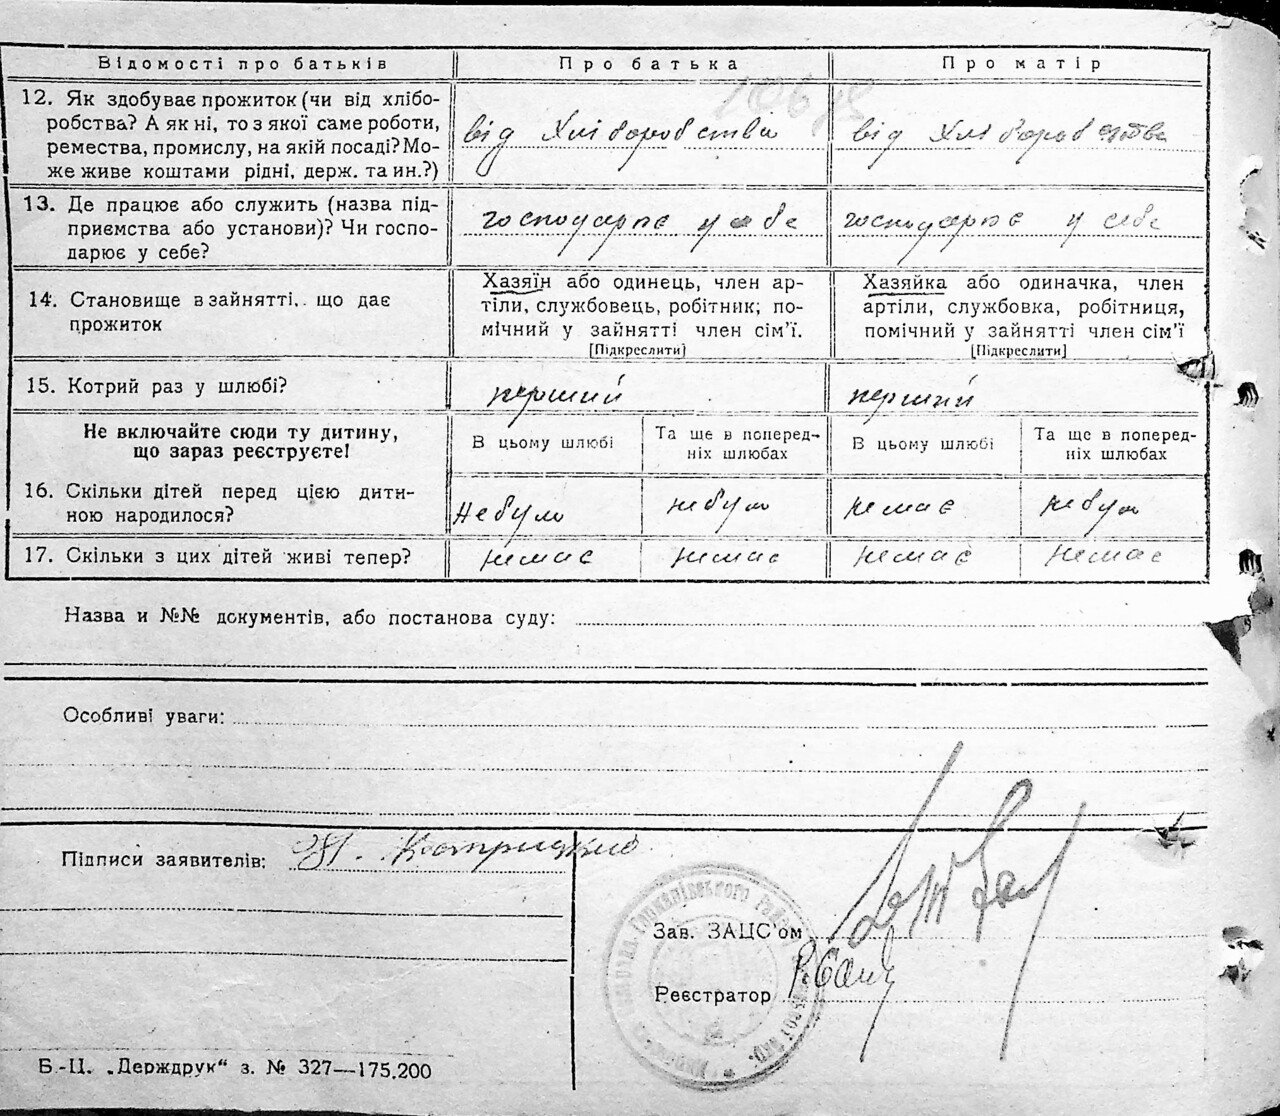 Відомості про батьків Про батька Про матір
12. Як здобуває прожиток (чи від хлібо-
робства? А як ні, то з якої саме роботи,
ремества, промислу, на якій посаді? Мо-
же живе коштами рідні, держ. та ин.?)
від Хліборобства від Хліборобства
13. Де працює або служить (назва під-
приємства або установи)? Чи госпо-
дарює у себе?
господарює у себе господарює у себе
14. Становище в зайнятті, що дає
прожиток
Хазяїн або одинець, член ар-
тіли, службовець, робітник; по-
мічний у зайнятті член сім'ї.
[Підкреслити]
Хазяйка або одиначка, член
артіли, службовка, робітниця,
помічний у зайнятті член сім'ї
[Підкреслити]
15. Котрий раз у шлюбі? перший перший
Не включайте сюди ту дитину,
що зараз реєструєте!
В цьому шлюбі
Та ще в поперед-
ніх шлюбах
В цьому шлюбі
Та ще в поперед-
ніх шлюбах
16. Скільки дітей перед цією дити-
ною народилося?
Не було не було немає не було
17. Скільки з цих дітей живі тепер? немає немає немає немає
Назва и №№ документів, або постанова суду:
Особливі уваги:
Підписи заявителів:
Зав. ЗАЦС'ом
Реєстратор
Б.-Ц. „Держдрук“ з. № 327—175.200